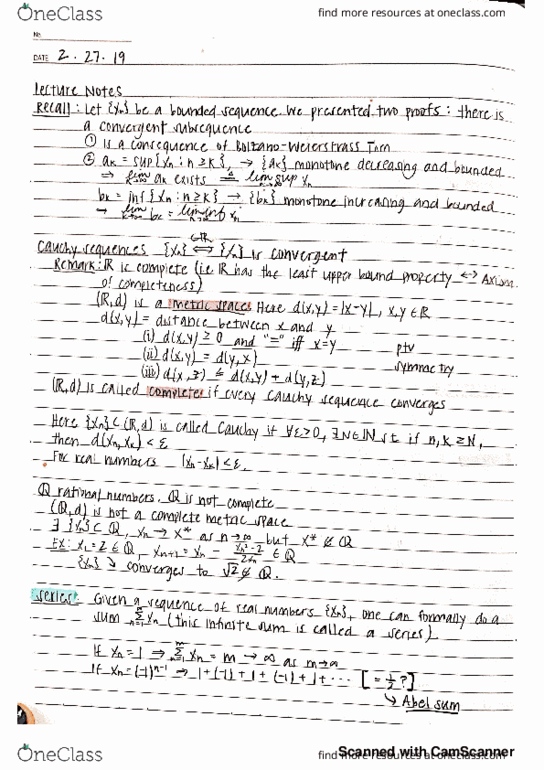 OneClass
find more resources at oneclass.com
No.
DATE 2.27.19
Lecture Notes
Recall: Let {Xn} be a bounded sequence. We presented two proofs: there is
a convergent subsequence
① is a consequence of Bolzano-Weierstrass Thm
② ak = sup{Xn: n ≥ k}, → {ak} monotone decreasing and bounded
⇒ lim k→∞ ak exists ≜ lim sup n→∞ Xn
bk = inf{Xn: n ≥ k} → {bk} monotone increasing and bounded
→ lim k→∞ bk = lim inf n→∞ Xn
Cauchy sequences {Xn} ⊂ℝ ⟺ {Xn} is convergent
Remark: ℝ is complete (i.e ℝ has the least upper bound property ↔ Axiom
of completeness)
(ℝ,d) is a metric space. Here d(x,y) = |x-y|, x,y ∈ ℝ
d(x,y) = distance between x and y
(i) d(x,y) ≥ 0 and "=" iff x=y ptv
(ii) d(x,y) = d(y,x) symmetry
(iii) d(x,z) ≤ d(x,y) + d(y,z)
(ℝ,d) is called complete if every Cauchy sequence converges
Here {Xn} ⊂ (ℝ,d) is called Cauchy if ∀ε>0, ∃N∈ℕ st if n,k ≥ N,
then d(Xn,Xk) < ε
For real numbers |Xn-Xk| < ε.
ℚ rational numbers. ℚ is not complete
(ℚ,d) is not a complete metric space
∃ {Xn} ⊂ ℚ, Xn → X* as n→∞ but X* ∉ ℚ
Ex: X1 = 2 ∈ ℚ, Xn+1 = Xn - (Xn²-2)/(2Xn) ∈ ℚ
{Xn} ↘ converges to √2 ∉ ℚ.
Series: Given a sequence of real numbers {Xn}, one can formally do a
sum ∑ n=1 ∞ Xn (this infinite sum is called a series)
If Xn = 1 ⇒ ∑ n=1 m Xn = m → ∞ as m→∞
If Xn = (-1)^n-1 ⇒ 1 + (-1) + 1 + (-1) + 1 + ... [= ½?]
↳ Abel sum
OneClass
find more resources at oneclass.com
Scanned with CamScanner